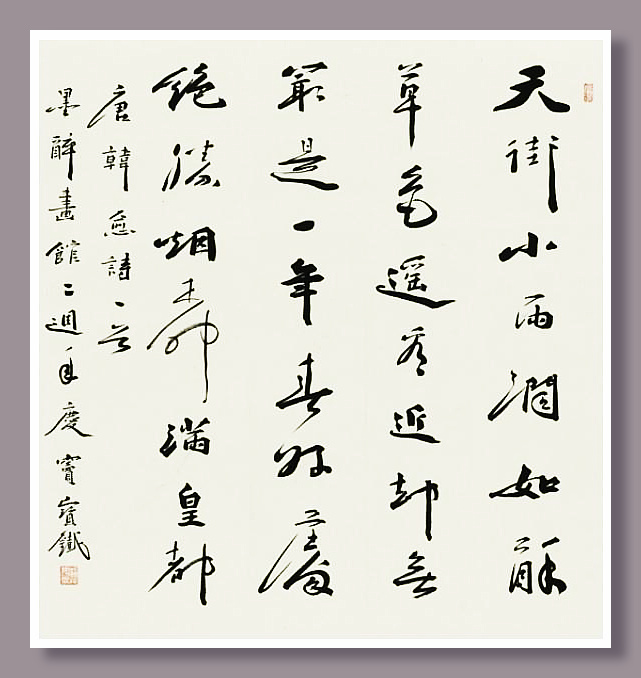 天街小雨潤如酥
草色遥看近却無
最是一年春好處
絶勝烟柳滿皇都
唐韓愈詩一首
墨醉畫館二週年慶